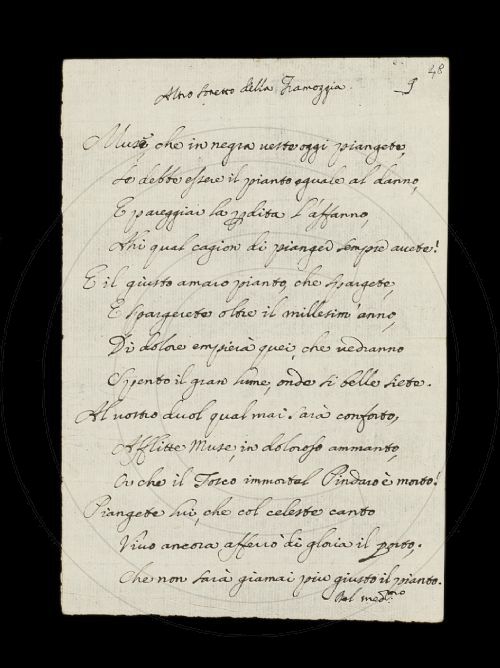 48
Altro Sonetto della Tramoggia.
Muse, che in negra veste oggi piangete,
Se debbe essere il pianto eguale al danno,
E pareggiar la pdita l'affanno,
Ahi qual cagion di pianger sempre avete!
E il giusto amaro pianto, che spargete,
E spargerete oltre il millesim'anno,
Di dolore empierà quei, che vedranno
Spento il gran lume, onde si belle siete.
Al vostro duol qual mai sarà conforto,
Afflitte Muse, in doloroso ammanto,
Or che il Tosco immortal Pindaro è morto!
Piangete lui, che col celeste canto
Vivo ancora afferrò di gloria il porto,
Che non sarà giamai piu giusto il pianto.
Del med.mo